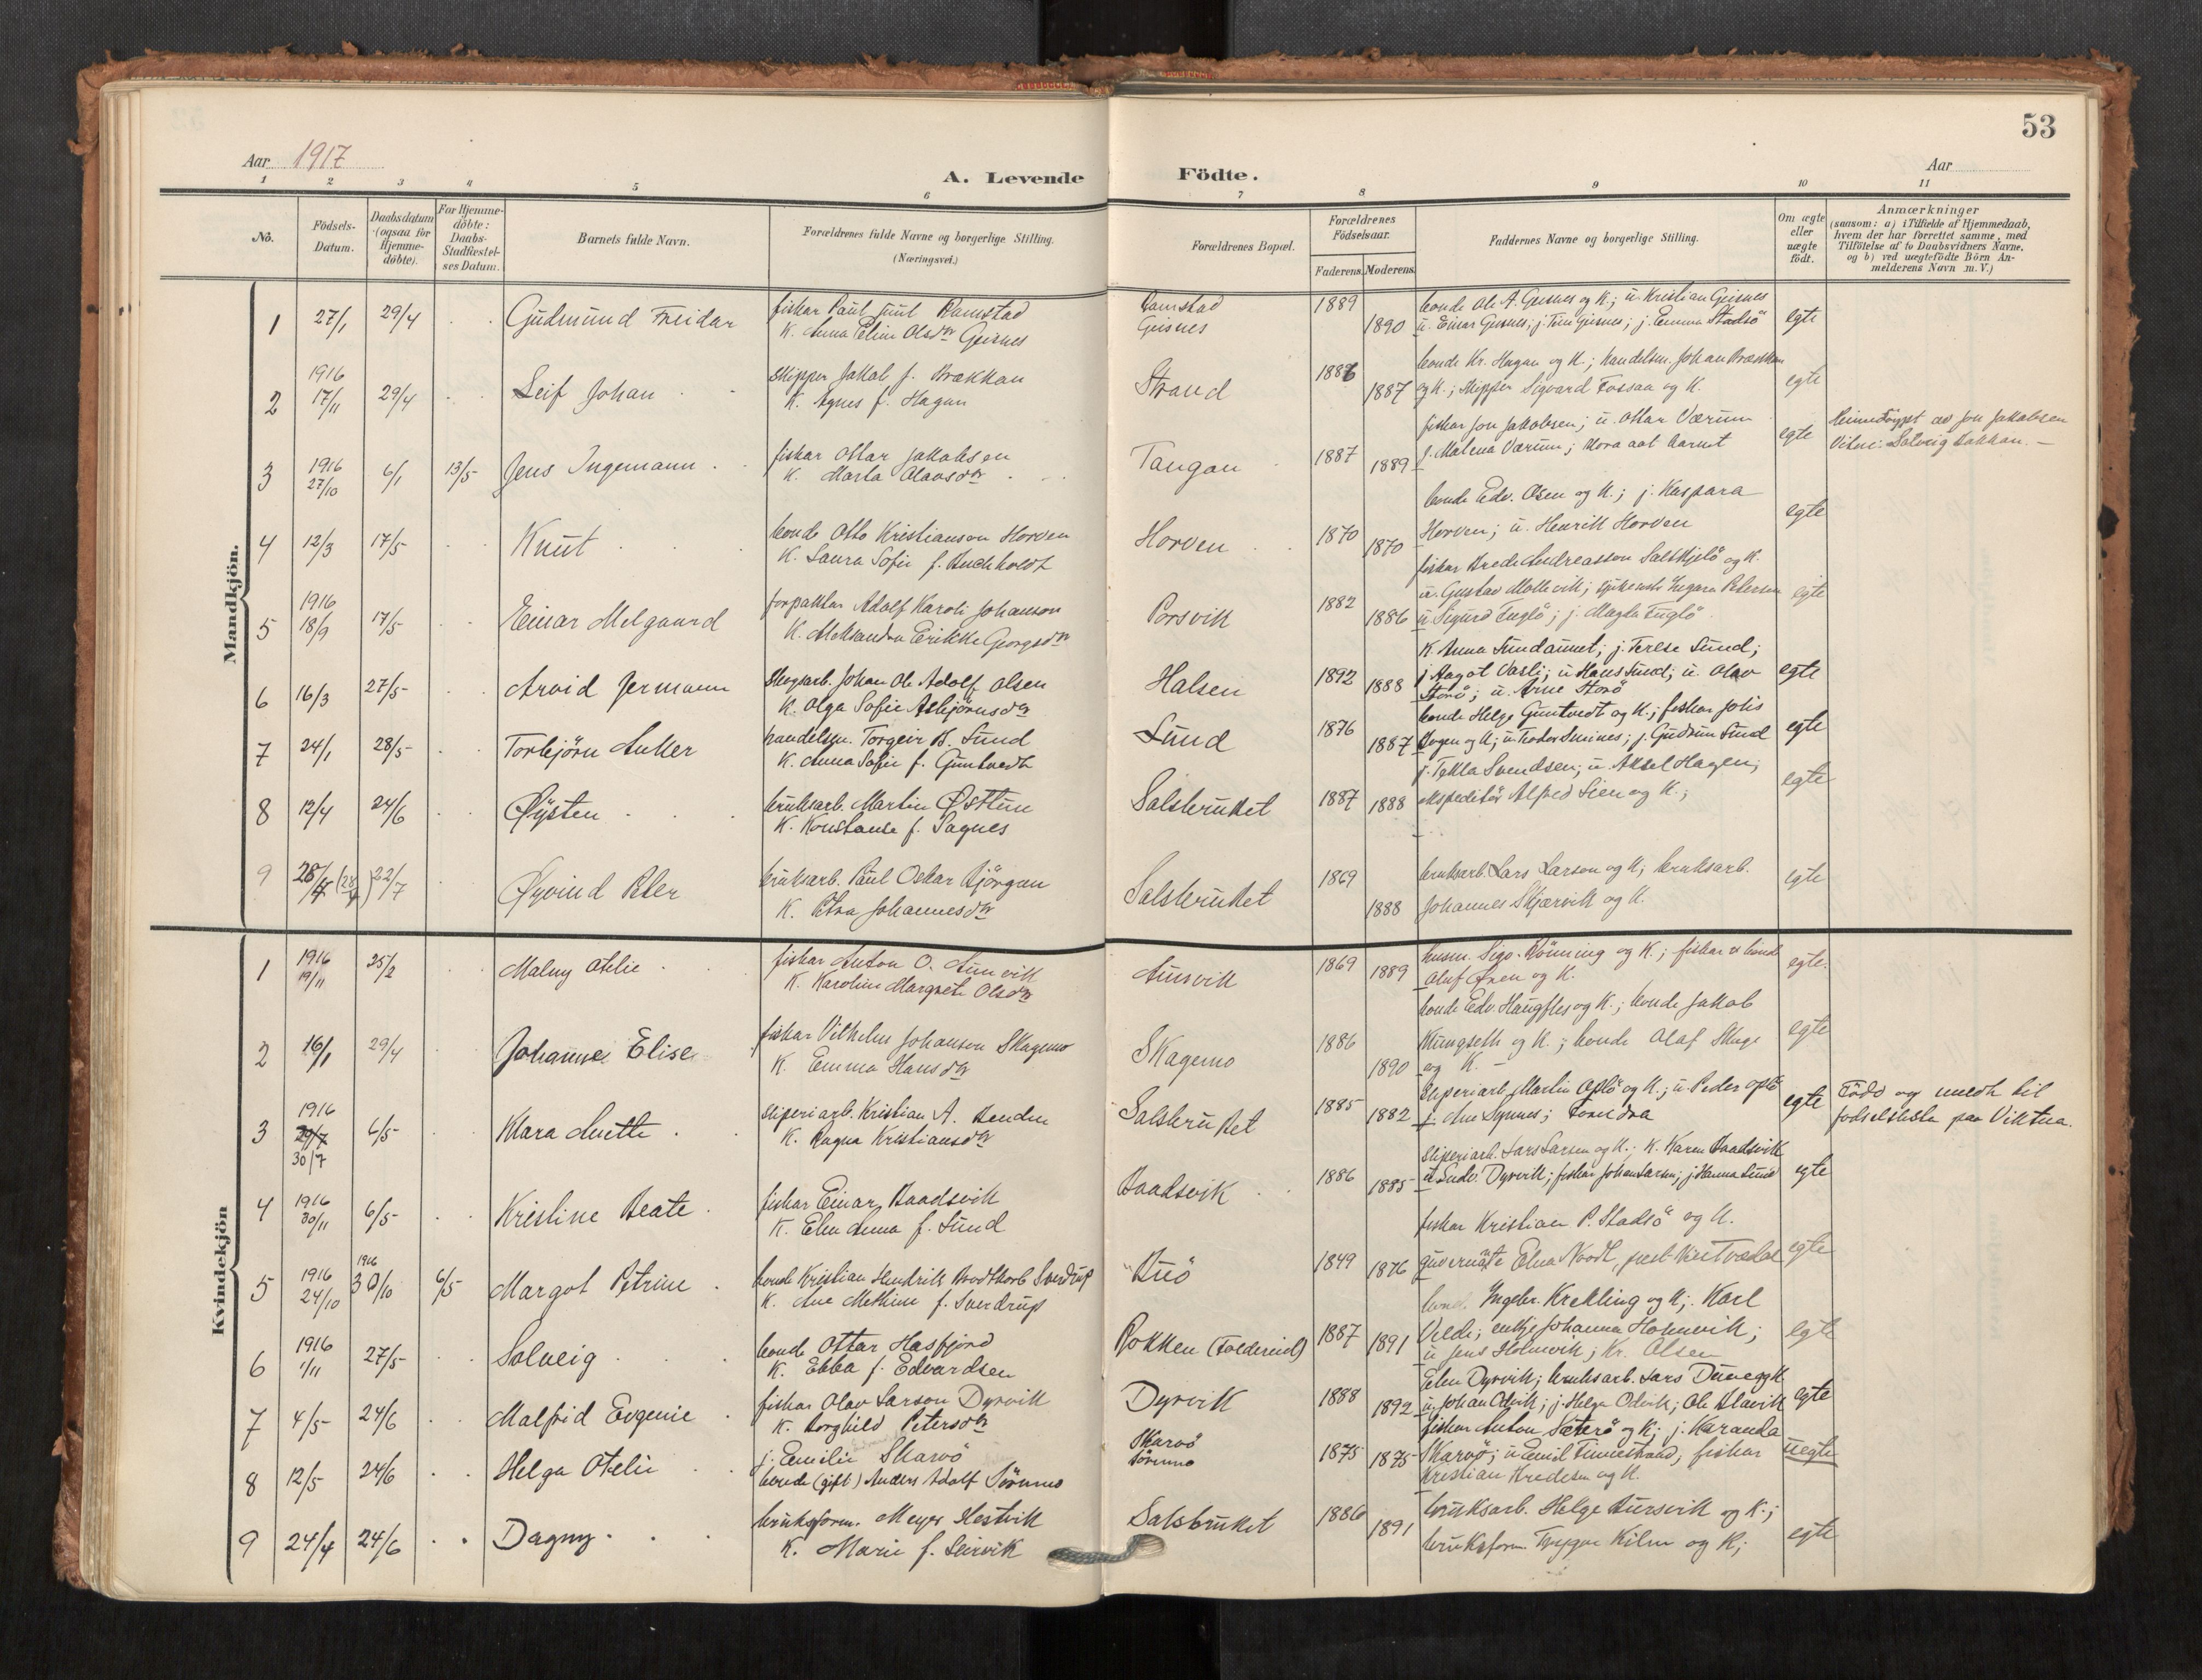 53
Aar 1917
Aar
A. Levende Födte.
1 2 3 4 5 6 7 8 9 10 11
No.
Födsels-Datum.
Daabsdatum (ogsaa for Hjemme-döbte).
For Hjemme-döbte: Daabs-Stadfæstel-ses Datum.
Barnets fulde Navn.
Forældrenes fulde Navne og borgerlige Stilling.
(Næringsvei.)
Forældrenes Bopæl.
Forældrenes Födselsaar.
Faderens. Moderens.
Faddernes Navne og borgerlige Stilling.
Om ægte eller uægte födt.
Anmærkninger
(saasom: a) i Tilfælde af Hjemmedaab,
hvem der har forrettet samme, med
Tilföielse af to Daabsvidners Navne,
og b) ved uægtefödte Börn An-
melderens Navn m. V.)
Mandkjön.
1 27/1 29/4 Gudmund Freidar
fiskar Paul Juul Ramstad
K. Anna Eline Olsdtr Geisnes
Ramstad
Geisnes
1889 1890
bonde Ole A. Geisnes og K.; u. Kristian Geisnes
u. Einar Geisnes; j. Tina Geisnes; j. Emma Stadsö
egte
2 1916 17/11 29/4 Leif Johan
skipper Jakob J. Brækkan
K. Agnes f. Hagan
Strand
1886 1887
bonde Kr. Hagan og K.; handelsm. Johan Brækkan
og K.; skipper Sigvard Fossaa og K.
egte
3 1916 27/10 6/1 13/5 Jens Ingemann
fiskar Ottar Jakobsen
K. Marta Olavsdtr
Tangan
1887 1889
fiskar Jon Jakobsen; u. Ottar Værum
j. Malena Værum; mora aat barnet
egte
Heimedöypt av Jon Jakobsen
Vitne: Solveig Bakkan. —
4 12/3 17/5 Knut
bonde Otto Kristianson Horven
K. Laura Sofie f. Buchholdt
Horven
1870 1870
bonde Edv. Olsen og K.; j. Kaspara
Horven; u. Henrik Horven
egte
5 1916 18/9 17/5 Einar Melgaard
forpaktar Adolf Karoli Johanson
K. Aleksandra Erikke Georgsdtr
Porsvik
1882 1886
fiskar Brede Andreasson og K.
u. Gustav Mollevik; Petersen
u. Sigurd Fuglö; j. Magda Fuglö
egte
6 16/3 27/5 Arvid Jermann
Skogsarb. Johan Ole Adolf Olsen
K. Olga Sofie Asbjörnsdtr
Halsen
1892 1888
K. Anna Sundaunet; j. Terese Sund;
j. Aagot Vasli; u. Hans Sund; u. Olav
Storö; u. Arne Storö
egte
7 24/1 28/5 Torbjörn Anker
handelsm. Torgeir B. Sund
K. Anna Sofie f. Guntvedt
Sund
1876 1887
bonde Helge Guntvedt og K.; fiskar Johs
Hagen og K; u. Teodor Smines; j. Gudrun Sund
egte
8 12/4 24/6 Øysten
bruksarb. Martin Østtun
K. Konstanse f. Sagnes
Salsbruket
1887 1888
j. Tekla Svendsen; u. Aksel Hagen;
ekspeditör Alfred Lien og K.;
egte
9 28/4 22/7 Øyvind Peter
bruksarb. Paul Oskar Bjørgan
K. Petra Johannesdtr
Salsbruket
1869 1888
bruksarb. Lars Larsen og K; bruksarb.
Johannes Skjærvik og K.
egte
Kvindekjön
1 1916 19/11 25/2 Malmy Otelie
fiskar Anton O. Aunvik
K. Karoline Margrete Olsdtr
Aunsvik
1869 1889
husm. Sigv. Rönning og K.; fiskar & bonde
Oluf Oxen og K.
egte.
2 16/1 29/4 Johanne Elise
fiskar Vilhelm Johanson Skagemo
K. Emma Hansdtr
Skagemo
1886 1890
bonde Edv. Haugfles og K.; bonde Jakob
Kungseth og K.; bonde Olaf Skage
og K. —
egte
3 1916 29/7 30/7 6/5 Klara Anette
sliperiarb. Kristian A. Bendu
K. Ragna Kristiansdtr
Salsbruket
1885 1882
sliperiarb. Martin Oplö og K.; u. Peder Oplö
j. Ane Synnes; Foreldra
egte
Född og meldt til
fodselslista paa Viktna.
4 1916 30/11 6/5 Kristine Beate
fiskar Einar Baadsvik
K. Elen Anna f. Sund
Baadsvik
1886 1885
sliperiarb. Lars Larsen og K.; K. Karen Baadsvik
u. Ludv. Dyrvik; fiskar Johan Larsen; j. Hanna Sund
egte
5 1916 24/10 1916 30/10 6/5 Margot Petrine
bonde Kristian Hendrik Brodtkorb Sverdrup
K. Ane Methine f. Sverdrup
Buö
1849 1876
fiskar Kristian P. Stadsö og K.
guvernante Elna Noodt,
egte
6 1916 1/11 27/5 Solveig
bonde Ottar Hasfjord
K. Ebba f. Edvardsen
Rokken (Foldereid)
1887 1891
bond. Ingebr. Krekling og K; Karl
Velde; enkje Johanna Holmvik;
u. Jens Holmvik; Kr. Olsen
egte
7 4/5 24/6 Malfrid Evgenie
fiskar Olav Larson Dyrvik
K. Borghild Petersdtr
Dyrvik
1888 1892
Elen Dyrvik; bruksarb. Lars Duneggk
u. Johan Odvik; j. Helga Odvik; Ole Blavik
egte
8 12/5 24/6 Helga Otelie
j. Emilie Skarvö
bonde (gift) Anders Adolf Sörmo
Skarvö
Sörmo
1875 1875
fiskar Anton Sæterö og K; j. Karanda
Skarvö; u. Emil Finnestrand, fiskar
Kristian Bredesen og K.
uegte
9 24/4 24/6 Dagny
bruksform. Meyer Hestvik
K. Marie f. Leirvik
Salsbruket
1886 1891
bruksarb. Helge Aursvik og K.;
bruksform. Trygve Kilen og K;
egte